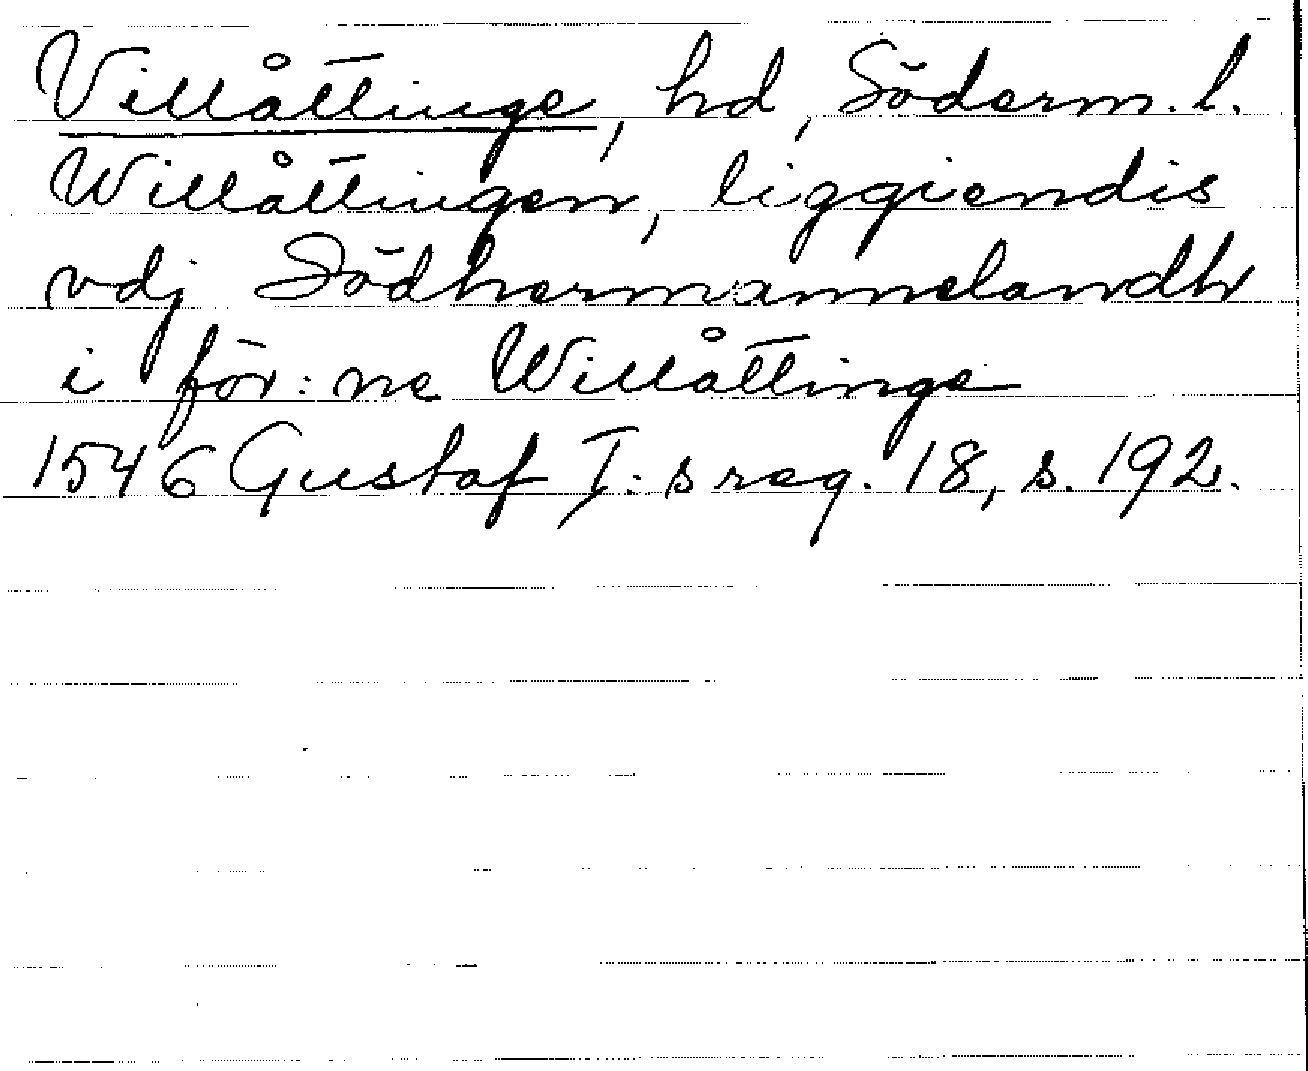 Villåttinge, hd, Söderm. l.
Willåttingen, liggiendis
vdj Södhermannelandh
i för: ne Willåttinge
1546 Gustaf I: s reg. 18, s. 192.